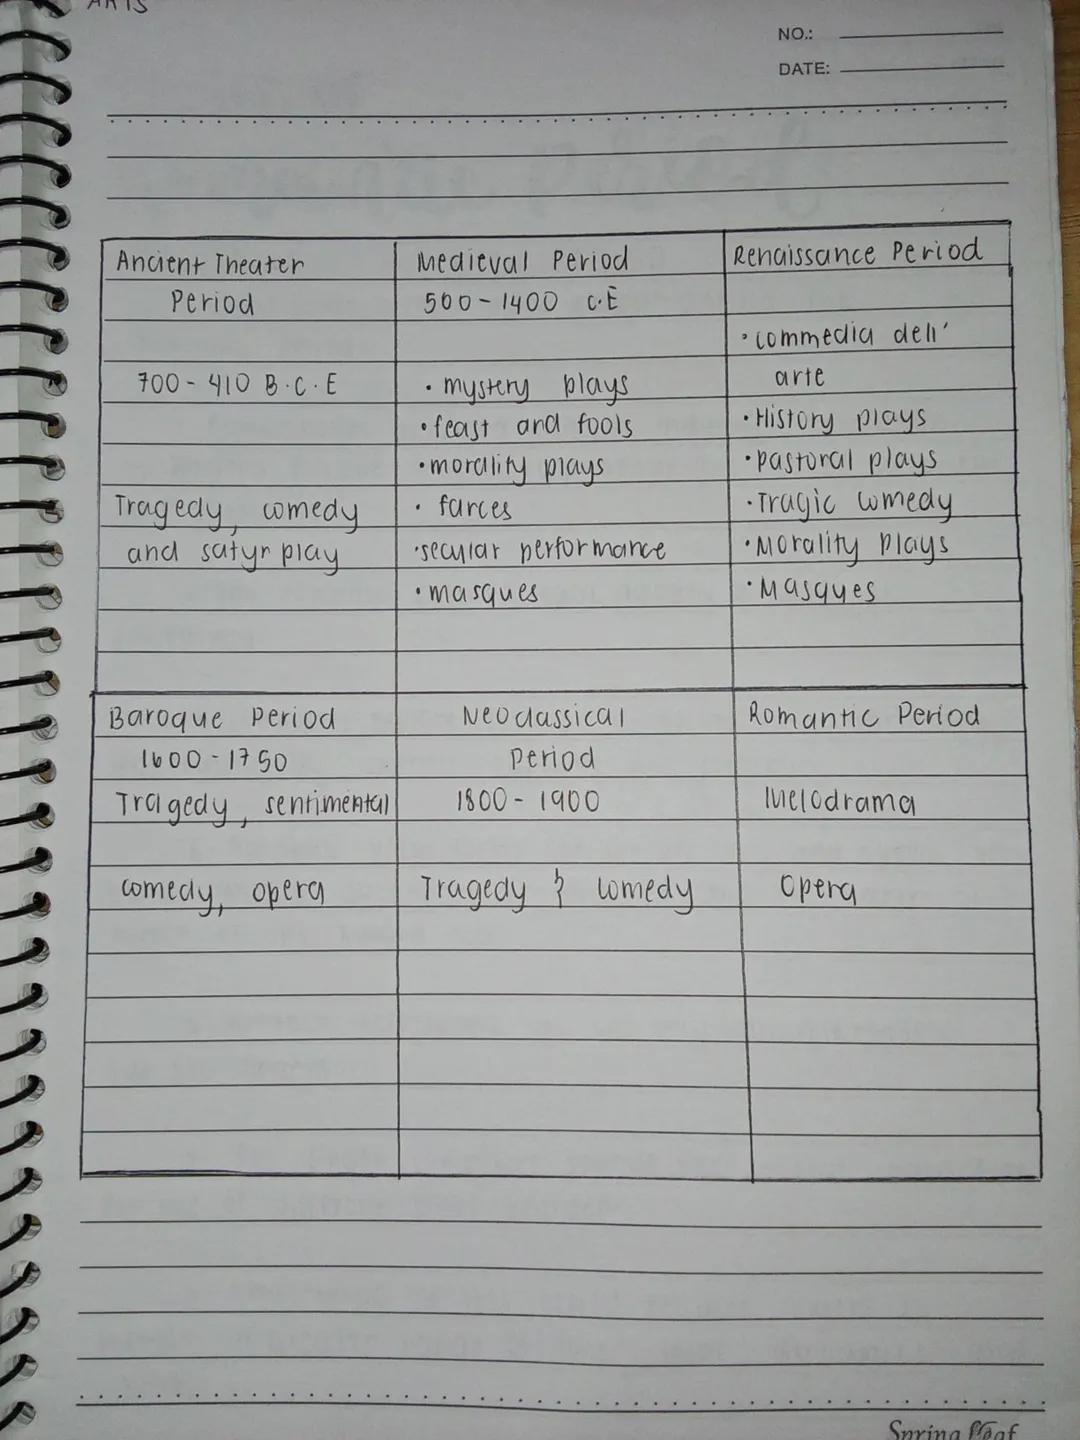 ARTS
NO.:
DATE:
Ancient Theater
Period
700-410 B.C.E
Tragedy, comedy
and satyr play
Medieval Period
500-1400 C.E
• mystery plays
• feast and fools
• morality plays
• farces
• secular performance
• masques
Renaissance Period
• commedia dell'
arte
• History plays
• pastoral plays
• Tragic comedy
• Morality Plays
• Masques
Baroque Period
1600-1750
Tragedy, sentimental
comedy, opera
Neoclassical
Period
1800-1900
Tragedy & comedy
Romantic Period
Melodrama
Opera
Spring Leaf